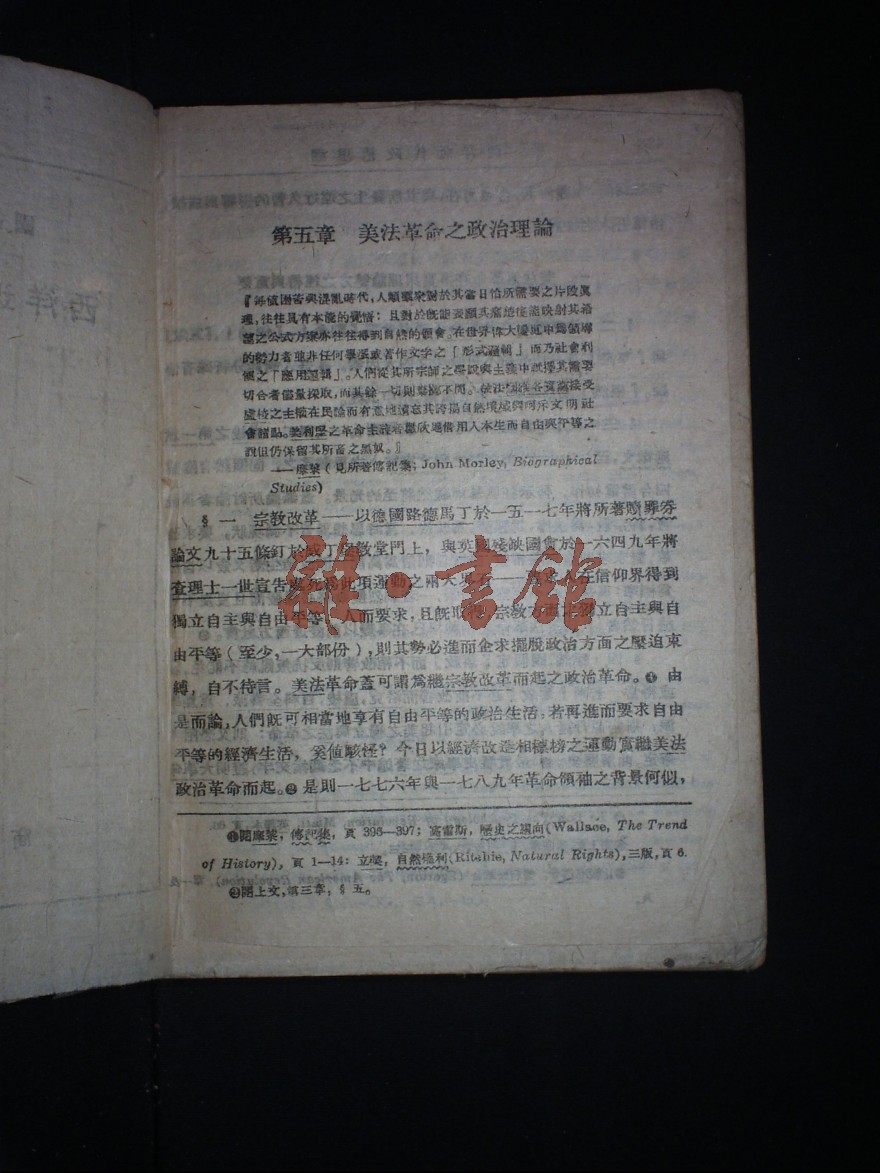 第五章 美法革命之政治理論
『每値困苦與混亂時代，人類羣衆對於其當日恰所需要之片段眞
理，往往具有本能的覺悟；且對於旣能表顯其痛楚復能映射其希
望之公式方案亦往往得到自然的領會。在世界偉大變遷中爲領導
的勢力者並非任何學派或著作文字之「形式邏輯」而乃社會利
便之「應用邏輯」。人們從其所宗師之學說與主義中祇擇其需要
切合者儘量採取，而其餘一切則棄置不問。
處境之主權在民論而有意地遺忘其誇揚自然境域與呵斥文明社
會諸點。美利堅之革命主義者雖欣迎信用人本生而自由與平等之
說但仍保留其所畜之黑奴。』
——摩黎（見所著傳記集；John Morley, Biographical
Studies）
§ 一 宗敎改革——以德國路德馬丁於一五一七年將所著贖罪券
論文九十五條釘於威丁堡敎堂門上，與英國殘缺國會於一六四九年將
查理士一世宣告處死爲此項運動之兩大界石——
獨立自主與自由平等 人而要求，且旣取得宗敎方面 獨立自主與自
由平等（至少，一大部份），則其勢必進而企求擺脫政治方面之壓迫束
縛，自不待言。美法革命蓋可謂爲繼宗敎改革而起之政治革命。❶ 由
是而論，人們旣可相當地享有自由平等的政治生活，若再進而要求自由
平等的經濟生活，奚値駭怪？今日以經濟改造相標榜之運動實繼美法
政治革命而起。❷ 是則一七七六年與一七八九年革命領袖之背景何似，
❶閱摩黎，傳記集，頁 396—397；窩雷斯，歷史之趨向(Wallace, The Trend
of History)，頁 1—14；立嘁，自然權利(Ritchie, Natural Rights)，三版，頁 6.
❷閱上文，第三章，§ 五。
雜·書館
西洋